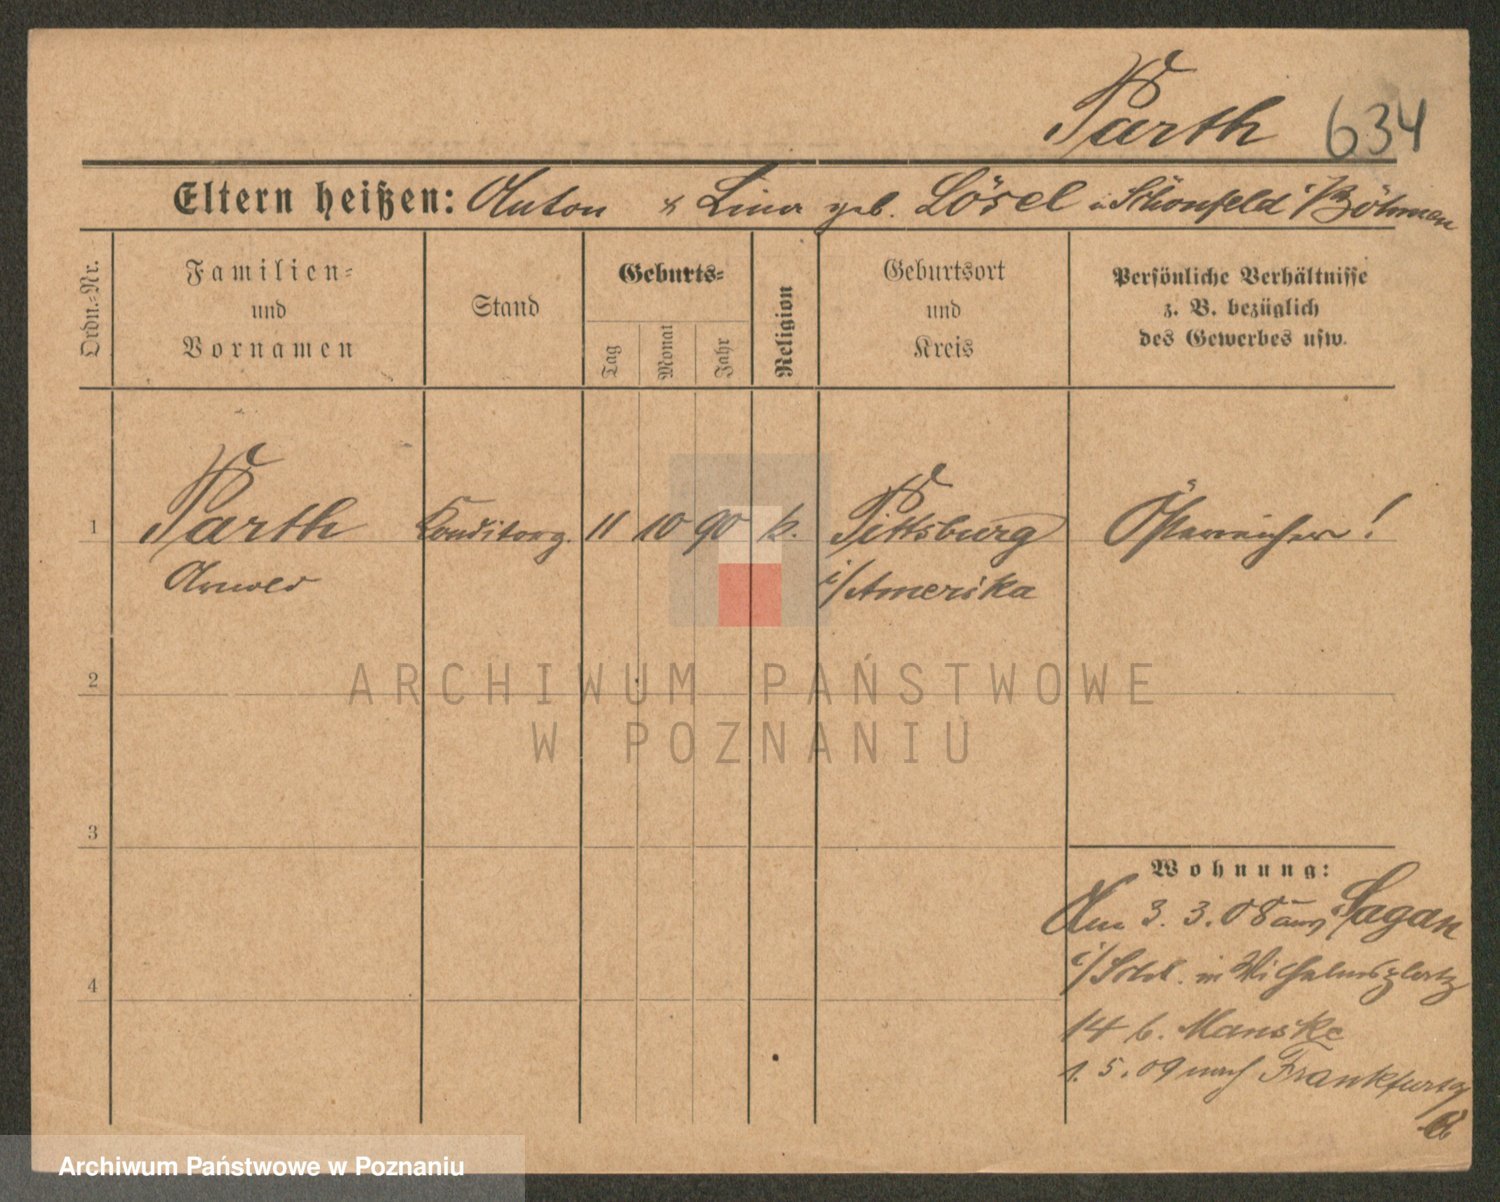 Parth 634
Eltern heißen: Anton & Lina geb. Lösel i. Schönfeld i/Böhmen
Ordn.-Nr.
Familien-
und
Vornamen
Stand
Geburts-
Tag
Monat
Jahr
Religion
Geburtsort
und
Kreis
Persönliche Verhältnisse
z. B. bezüglich
des Gewerbes usw.
1 Parth Conditorg. 11 10 90 k. Pittsburg Österreicher!
Arnold i/Amerika
2
ARCHIWUM PAŃSTWOWE
W POZNANIU
3
Wohnung:
Am 3. 3. 08 aus Sagan
i/Schl. in Wilhelmsplatz
4
14 b. Manske
1. 5. 09 nach Frankfurt
Archiwum Państwowe w Poznaniu